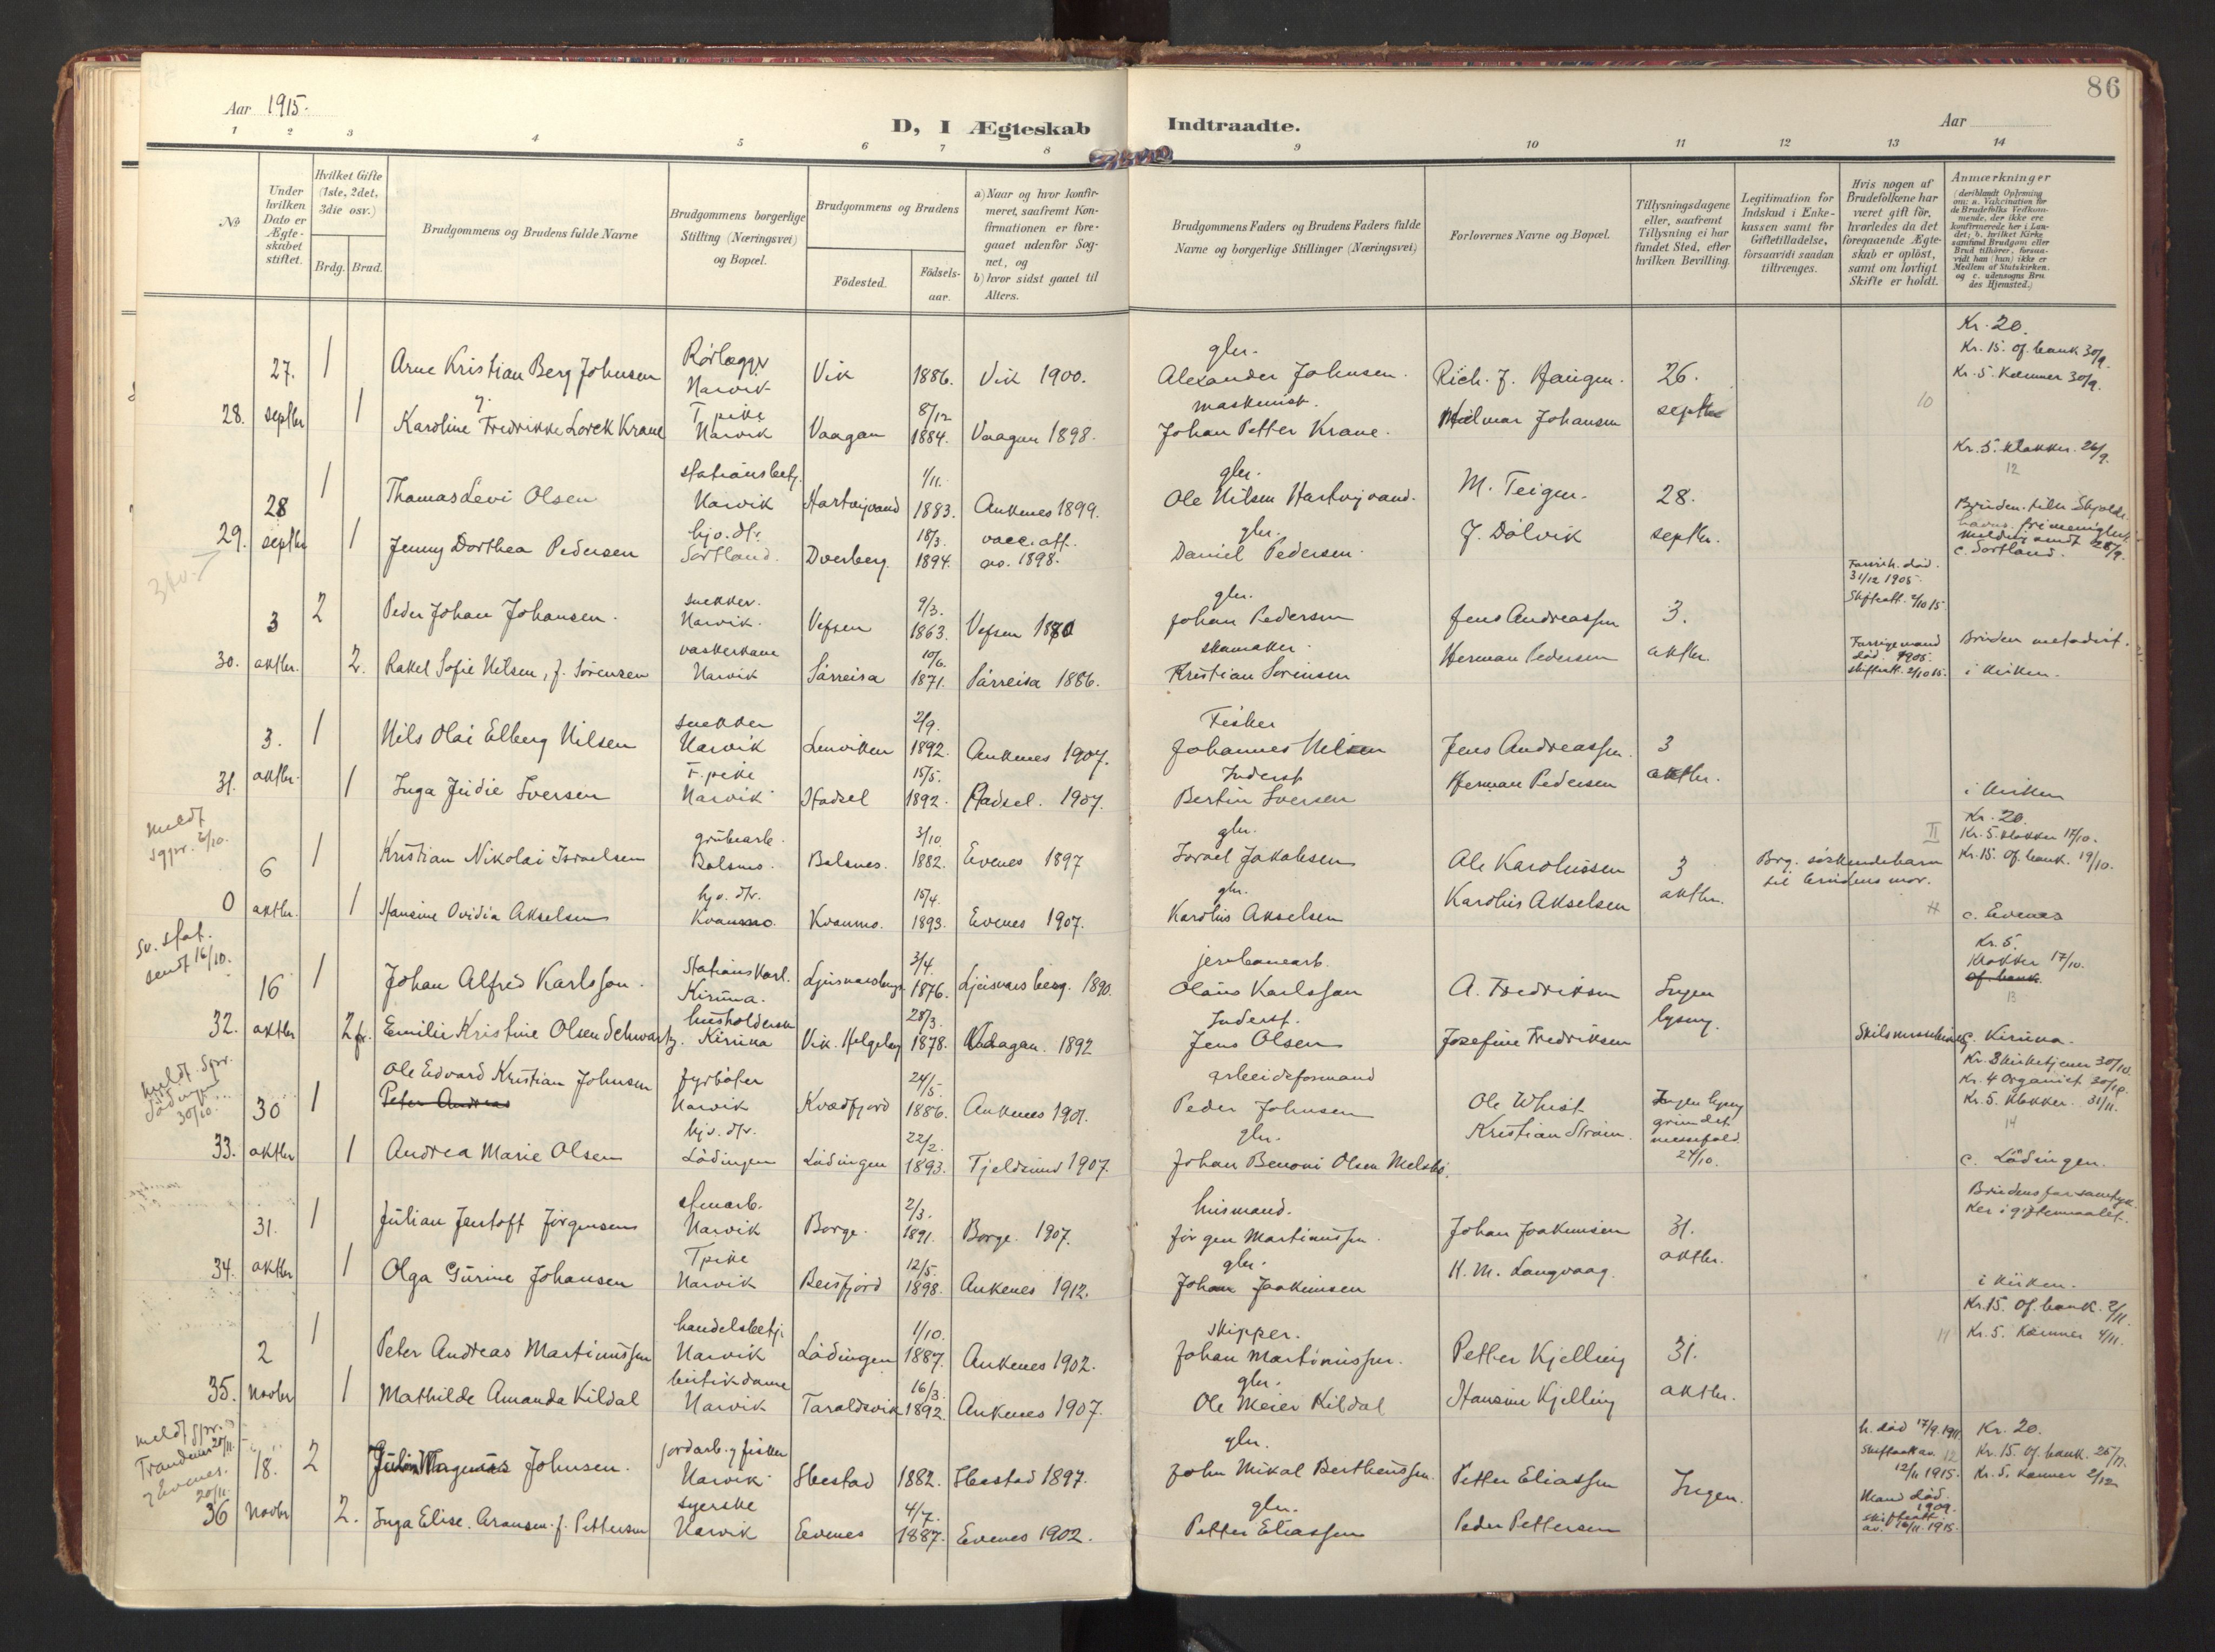 86
Aar 1915.
D, I Ægteskab Indtraadte.
Aar
1 2 3 4 5 6 7 8 9 10 11 12 13 14
№
Under hvilken Dato er Ægteskabet stiftet.
Hvilket Gifte (1ste, 2det, 3die osv.)
Brdg. Brud.
Brudgommens og Brudens fulde Navne
Brudgommens borgerlige Stilling (Næringsvei) og Bopæl.
Brudgommens og Brudens
Födested.
Födselsaar.
a) Naar og hvor konfirmeret, saafremt Konfirmationen er foregaaet udenfor Sognet, og
b) hvor sidst gaaet til Alters.
Brudgommens Faders og Brudens Faders fulde Navne og borgerlige Stillinger (Næringsvei)
Forlovernes Navne og Bopæl.
Tillysningsdagene eller, saafremt Tillysning ei har fundet Sted, efter hvilken Bevilling.
Legitimation for Indskud i Enkekassen samt for Giftetilladelse, forsaavidt saadan tiltrænges.
Hvis nogen af Brudefolkene har været gift för, hvorledes da det foregaaende Ægteskab er oplöst, samt om lovligt Skifte er holdt.
Anmærkninger
(deriblandt Oplysning om: a. Vakcination for de Brudefolks Vedkommende, der ikke ere konfirmerede her i Landet; b. hvilket Kirkesamfund Brudgom eller Brud tilhører, forsaavidt han (hun) ikke er Medlem af Statskirken, og c. udensogns Brudes Hjemsted.)
Kr. 20.
Kr. 15. Of. bank 30/9.
Kr. 5. Kæmner 30/9.
Rörlægger gbr.
27. 1 Arne Kristian Berg Johnsen Narvik Vik 1886. Vik 1900. Alexander Johnsen. Rich. J. Haugen. 26.
T pike 8/12 maskinist. 10
28. septbr 1 Karoline Fredrikke Lorck Krane Narvik Vaagan 1884. Vaagan 1898. Johan Petter Krane. Hilmar Johansen septbr
Kr. 5. Klokker. 26/9.
12
stationsbetj. 1/11. gbr.
28 1 Thomas Levi Olsen Narvik Hartvigvand 1883. Ankenes 1899. Ole Nilsen Hartvigvand. M. Teigen. 28.
hjv. dtr. 18/3. vacc. att. gbr.
29. septbr 1 Jenny Dorthea Pedersen Sortland. Dverberg 1894. av. 1898. Daniel Pedersen. J. Dölvik septbr.
c. Sortland.
31/12 1905.
Skifteatt. 2/10 15.
snekker. 9/3. gbr.
3 2 Peder Johan Johansen. Narvik. Vefsen 1863. Vefsen 1880 Johan Pedersen Jens Andreassen 3.
vaskerkone 10/6. skomaker. Bruden metodist.
30. oktbr. 2. Rakel Sofie Nilsen, f. Sörensen Narvik Sörreisa 1871. Sörreisa 1886. Kristian Sörensen Herman Pedersen oktbr. Forrige mand död. 1905. skifteatt. 2/10 15. i kirken.
snekker 2/9. Fisker
3. 1 Nils Olai Elberg Nilsen Narvik Lenviken 1892. Ankenes 1907. Johannes Nilsen Jens Andreassen. 3
T. pike 15/5. Inderst
31. oktbr. 1 Inga Judie Iversen Narvik Hadsel 1892. Hadsel. 1907. Bertin Iversen Herman Pedersen oktbr. i kirken
meldt sgpr. 2/10.
Kr. 20.
Kr. 5. Klokker 17/10.
Kr. 15. Of. bank. 19/10.
grubearb. 3/10. gbr. II
6 1 Kristian Nikolai Israelsen Balsnes. Balsnes. 1882. Evenes 1897 Israel Jakobsen Ole Karoliussen 3 Brg. söskendebarn til brudens mor.
hjv. dtr. 15/4. gbr.
0 oktbr. 1 Hansine Ovidia Akselsen Kvanmo. Kvanmo. 1893. Evenes 1907. Karolius Akselsen Karolius Akselsen oktbr. c. Evenes
sv. stat. sendt 16/10.
Kr. 5.
Klokker 17/10.
Of. bank.
13
Stationskarl. 3/4. jernbanearb.
16 1 Johan Alfred Karlsson. Kiruna. Ljusnarsberg 1876. Ljusnarsberg. 1890. Olaus Karlsson A. Fredriksen Ingen
husholderske 28/3. Inderst.
32. oktbr 2 fr. Emilie Kristine Olsen Schwartz. Kiruna Vik. Helgeland 1878. Vaagan. 1892 Jens Olsen Josefine Fredriksen lysning. Skilsmissebevilg. c. Kiruna.
meldt. Spr. Lödingen 30/10.
Kr. 3 Kirketjener 30/10.
Kr. 4 Organist 30/10.
Kr. 5. Klokker. 31/11.
14
Ole Edvard Kristian Johnsen fyrböter 24/5. arbeidsformand
30 1 Peter Andreas Narvik Kvædfjord 1886. Ankenes 1901. Peder Johnsen Ole Whist Ingen lysning
hjv. dtr. 22/2. gbr.
33. oktbr 1 Andrea Marie Olsen Lödingen Lödingen 1893. Tjeldsund 1907. Johan Benoni Olsen Kristian Ström. grundet messefald. 24/10. c. Lödingen.
Brudens far samtykker i giftermaalet.
stenarb. 2/3. husmand.
31. 1 Julian Jentoft Jörgensen Narvik Borge. 1891. Borge. 1907. Jörgen Martinussen. Johan Joakimsen 31.
T pike 12/5. gbr.
34. oktbr 1 Olga Gurine Johansen Narvik Beisfjord 1898. Ankenes 1912. Johan Joakimsen K. M. Langvaag. oktbr. i kirken.
Kr. 15. Of. bank. 2/11.
Kr. 5. Kæmner 4/11.
handelsbetj. 1/10. skipper. 11
2 1 Peter Andreas Martinussen Narvik Lödingen 1887. Ankenes 1902. Johan Martinussen. Petter Kjelling 31.
butikdame 16/3. gbr.
35. Novbr 1 Mathilde Amanda Kildal Narvik Taraldsvik 1892. Ankenes 1907. Ole Meier Kildal Hansine Kjelling oktbr.
meldt spr. i Trondenes 20/11. og Evenes. 20/11.
h. död 17/9. 1911 Skifteatt av. 12/11 1915.
Kr. 20.
Kr. 15. Of. bank. 25/11.
Kr. 5. Kæmner 2/12
jordarb. og fisker gbr. 12
18. 2 Magnus Johnsen. Narvik Ibestad 1882. Ibestad 1897. John Mikal Bertheussen. Petter Eliassen Ingen.
syerske 4/7. gbr. Mand död. 1909. skifteatt. av. 16/11. 1915.
36 Novbr 2. Inga Elise Aronsen. f. Pettersen Narvik Evenes 1887. Evenes 1902. Petter Eliassen Peder Pettersen